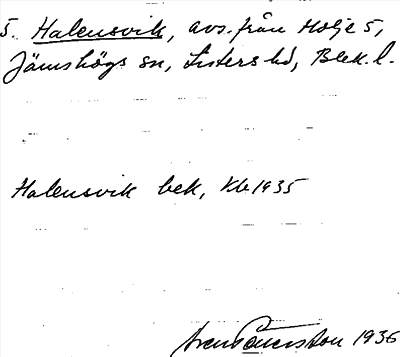 5. Halensvik, avs. från Holje 5,
Jämshögs sn, Listers hd, Blek. l.
Halensvik bek, Kb 1935
Sven Benson 1936